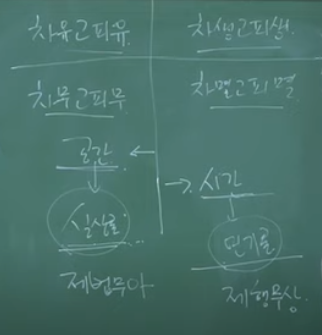 차유고피유 차생고피생
차무고피무 차멸고피멸
공간
시간
실상론
연기론
제법무아
제행무상